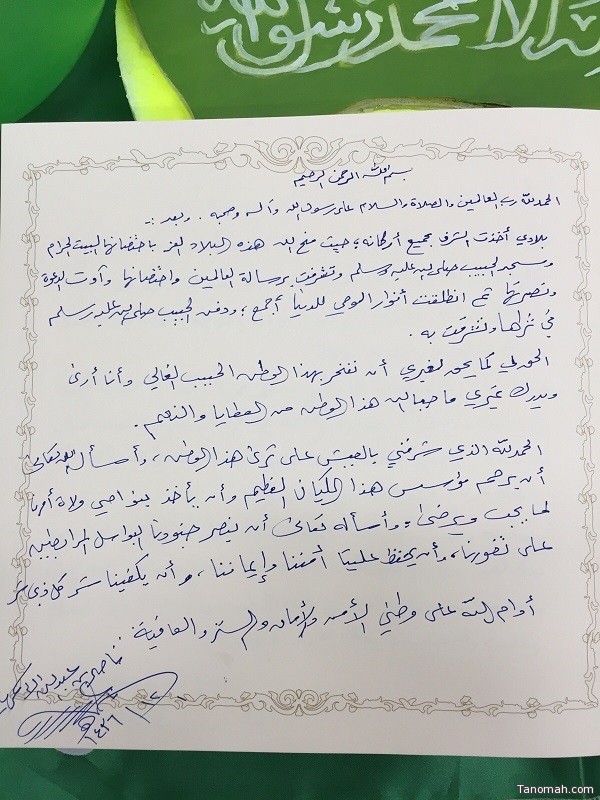 إله إلا محمد رسول الله
بسم الله الرحمن الرحيم
الحمد لله رب العالمين والصلاة والسلام على رسول الله وآله وصحبه . وبعد :-
بلادي أخذت الشرف بجميع أركانه ؛ حيث منح الله هذه البلاد العز باحتضانها البيت الحرام
ومسجد الحبيب صلى الله عليه وسلم وتشرفت برسالة العالمين واحتضانها وآوت الدعوة
ونصرتها ثم انطلقت أنوار الوحي للدنيا أجمع ؛ ودفن الحبيب صلى الله عليه وسلم
في ثراها وتشرفت به .
الحق لي كما يحق لغيري أن نفتخر بهذا الوطن الحبيب الغالي وأنا أرى
ويدرك غيري ما حبا الله هذا الوطن من العطايا والنعم .
الحمد لله الذي شرفني بالعيش على ثرى هذا الوطن ، وأسأل الله تعالى
أن يرحم مؤسس هذا الكيان العظيم وأن يأخذ بنواصي ولاة أمرنا
لما يحب ويرضى ، وأسأله تعالى أن ينصر جنودنا البواسل المرابطين
على ثغورنا ، وأن يحفظ علينا أمننا وإيماننا ، وأن يكفينا شر كل ذي شر
أدام الله على وطني الأمن والأمان والستر والعافية .
ناصر بن عبدالله
Tanomah.com